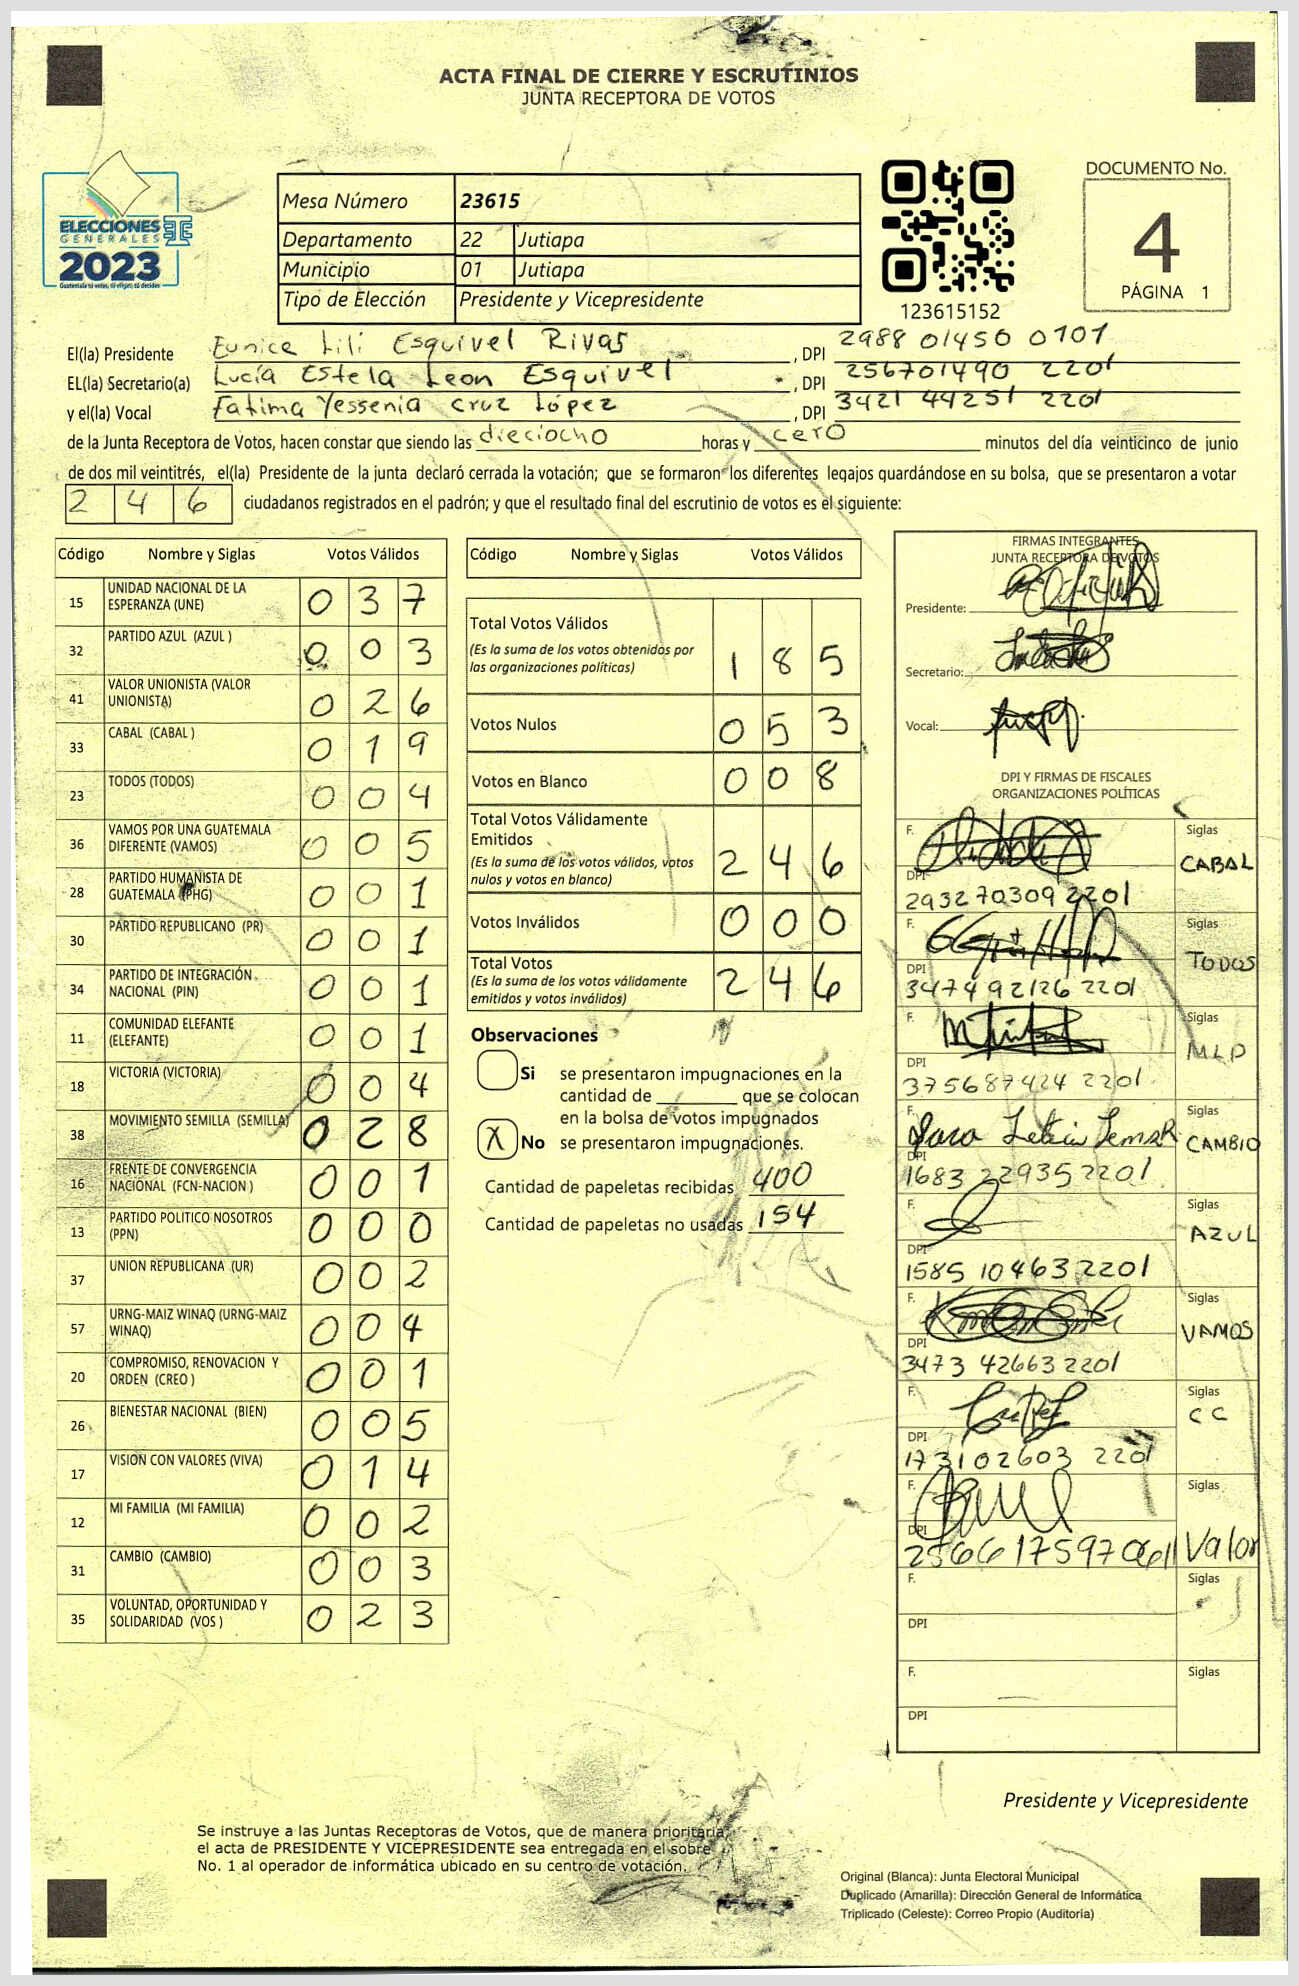 ACTA FINAL DE CIERRE Y ESCRUTINIOS
JUNTA RECEPTORA DE VOTOS
ELECCIONES
GENERALES
2023
Guatemala tú votas, tú eliges, tú decides
Mesa Número 23615
Departamento 22 Jutiapa
Municipio 01 Jutiapa
Tipo de Elección Presidente y Vicepresidente
123615152
DOCUMENTO No.
4
PÁGINA 1
El(la) Presidente Eunice Lili Esquivel Rivas, DPI 2988 01450 0101
EL(la) Secretario(a) Lucía Estela Leon Esquivel, DPI 256701490 2201
y el(la) Vocal Fatima Yessenia Cruz López, DPI 3421 44251 2201
de la Junta Receptora de Votos, hacen constar que siendo las dieciocho horas y cero minutos del día veinticinco de junio
de dos mil veintitrés, el(la) Presidente de la junta declaró cerrada la votación; que se formaron los diferentes legajos guardándose en su bolsa, que se presentaron a votar
246 ciudadanos registrados en el padrón; y que el resultado final del escrutinio de votos es el siguiente:
Código Nombre y Siglas Votos Válidos
15 UNIDAD NACIONAL DE LA ESPERANZA (UNE) 037
32 PARTIDO AZUL (AZUL ) 003
41 VALOR UNIONISTA (VALOR UNIONISTA) 026
33 CABAL (CABAL ) 019
23 TODOS (TODOS) 004
36 VAMOS POR UNA GUATEMALA DIFERENTE (VAMOS) 005
28 PARTIDO HUMANISTA DE GUATEMALA (PHG) 001
30 PARTIDO REPUBLICANO (PR) 001
34 PARTIDO DE INTEGRACIÓN NACIONAL (PIN) 001
11 COMUNIDAD ELEFANTE (ELEFANTE) 001
18 VICTORIA (VICTORIA) 004
38 MOVIMIENTO SEMILLA (SEMILLA) 028
16 FRENTE DE CONVERGENCIA NACIONAL (FCN-NACION ) 001
13 PARTIDO POLITICO NOSOTROS (PPN) 000
37 UNION REPUBLICANA (UR) 002
57 URNG-MAIZ WINAQ (URNG-MAIZ WINAQ) 004
20 COMPROMISO, RENOVACION Y ORDEN (CREO ) 001
26 BIENESTAR NACIONAL (BIEN) 005
17 VISION CON VALORES (VIVA) 014
12 MI FAMILIA (MI FAMILIA) 002
31 CAMBIO (CAMBIO) 003
35 VOLUNTAD, OPORTUNIDAD Y SOLIDARIDAD (VOS ) 023
Código Nombre y Siglas Votos Válidos
Total Votos Válidos
(Es la suma de los votos obtenidos por
las organizaciones políticas) 185
Votos Nulos 053
Votos en Blanco 008
Total Votos Válidamente
Emitidos
(Es la suma de los votos válidos, votos
nulos y votos en blanco) 246
Votos Inválidos 000
Total Votos
(Es la suma de los votos válidamente
emitidos y votos inválidos) 246
Observaciones
Si se presentaron impugnaciones en la
cantidad de ________ que se colocan
en la bolsa de votos impugnados
X No se presentaron impugnaciones.
Cantidad de papeletas recibidas 400
Cantidad de papeletas no usadas 154
FIRMAS INTEGRANTES
JUNTA RECEPTORA DE VOTOS
Presidente:
Secretario:
Vocal:
DPI Y FIRMAS DE FISCALES
ORGANIZACIONES POLÍTICAS
F. Siglas CABAL
DPI 293270309 2201
F. Siglas TODOS
DPI 347492126 2201
F. Siglas MLP
DPI 375687424 2201
F. Siglas CAMBIO
DPI 1683 22935 2201
F. Siglas AZUL
DPI 1585 10463 2201
F. Siglas VAMOS
DPI 3473 42663 2201
F. Siglas CC
DPI 173102603 2201
F. Siglas Valor
DPI 2566175970611
F. Siglas
DPI
F. Siglas
DPI
Presidente y Vicepresidente
Se instruye a las Juntas Receptoras de Votos, que de manera prioritaria,
el acta de PRESIDENTE Y VICEPRESIDENTE sea entregada en el sobre
No. 1 al operador de informática ubicado en su centro de votación.
Original (Blanca): Junta Electoral Municipal
Duplicado (Amarilla): Dirección General de Informática
Triplicado (Celeste): Correo Propio (Auditoría)